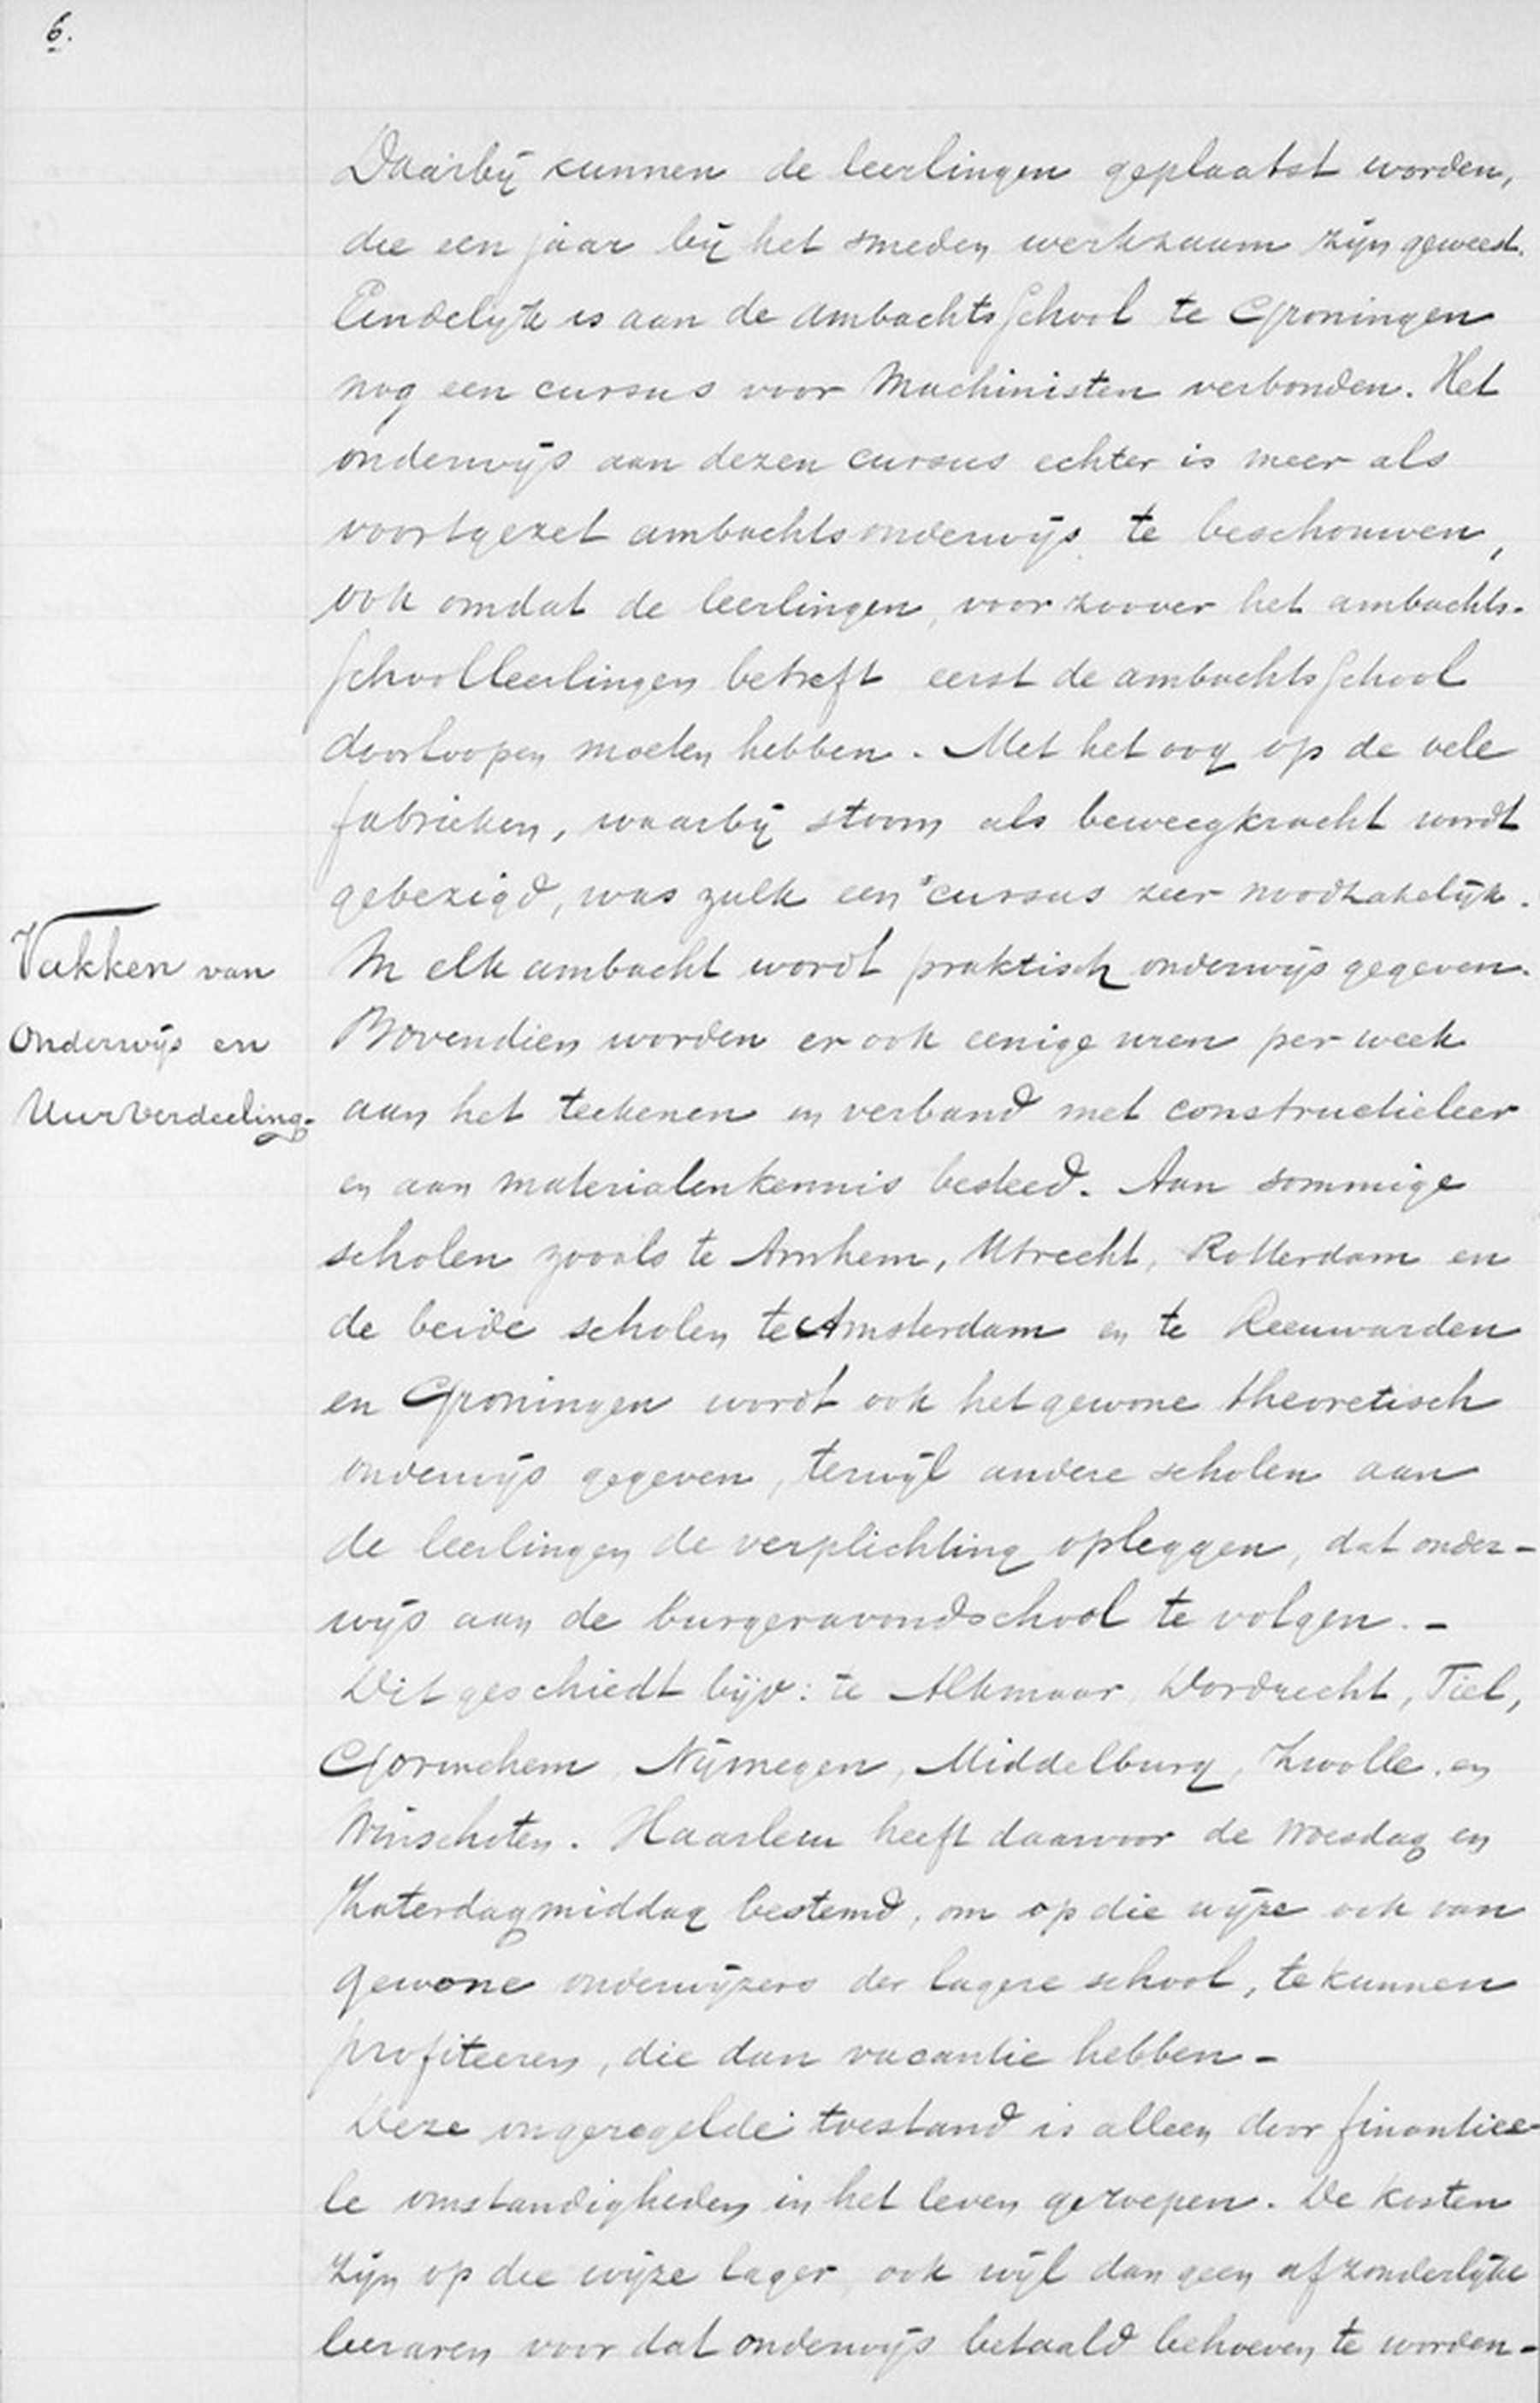 6.
Daarbij kunnen de leerlingen geplaatst worden,
die een jaar bij het smeden werkzaam zijn geweest.
Eindelijk is aan de ambachtsschool te Groningen
nog een cursus voor Machinisten verbonden. Het
onderwijs aan dezen cursus echter is meer als
voortgezet ambachtsonderwijs te beschouwen,
ook omdat de leerlingen, voor zoover het ambachts-
schoolleerlingen betreft eerst de ambachtsschool
doorloopen moeten hebben. Met het oog op de vele
fabrieken, waarbij stoom als beweegkracht wordt
gebezigd, was zulk een cursus zeer noodzakelijk.
Vakken van
Onderwijs en
Uurverdeeling.
In elk ambacht wordt praktisch onderwijs gegeven.
Bovendien worden er ook eenige uren per week
aan het teekenen in verband met constructieleer
en aan materialenkennis besteed. Aan sommige
scholen zooals te Arnhem, Utrecht, Rotterdam en
de beide scholen te Amsterdam en te Leeuwarden
en Groningen wordt ook het gewone theoretisch
onderwijs gegeven, terwijl andere scholen aan
de leerlingen de verplichting opleggen, dat onder-
wijs aan de burgeravondschool te volgen. -
Dit geschiedt bijv: te Alkmaar, Dordrecht, Tiel,
Gorinchem, Nijmegen, Middelburg, Zwolle, en
Winschoten. Haarlem heeft daarvoor de Woesdag en
Zaterdagmiddag bestemd, om op die wijze ook van
gewone onderwijzers der lagere school, te kunnen
profiteeren, die dan vacantie hebben -
Deze ongeregelde toestand is alleen door financiee-
le omstandigheden in het leven geroepen. De kosten
zijn op die wijze lager, ook wijl dan geen afzonderlijke
leeraren voor dat onderwijs betaald behoeven te worden -